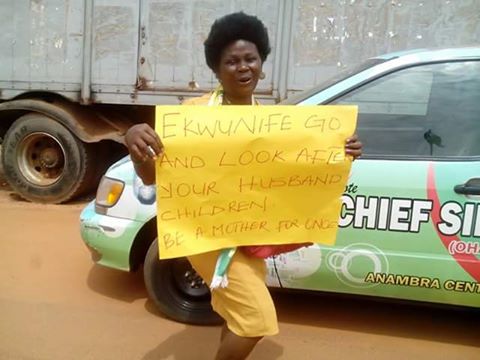 EKWUNIFE GO
AND LOOK AFTE
YOUR HUSBAND
CHILDREN.
BE A MOTHER FOR ONCE
CHIEF SI
(OH
ANAMBRA CENT